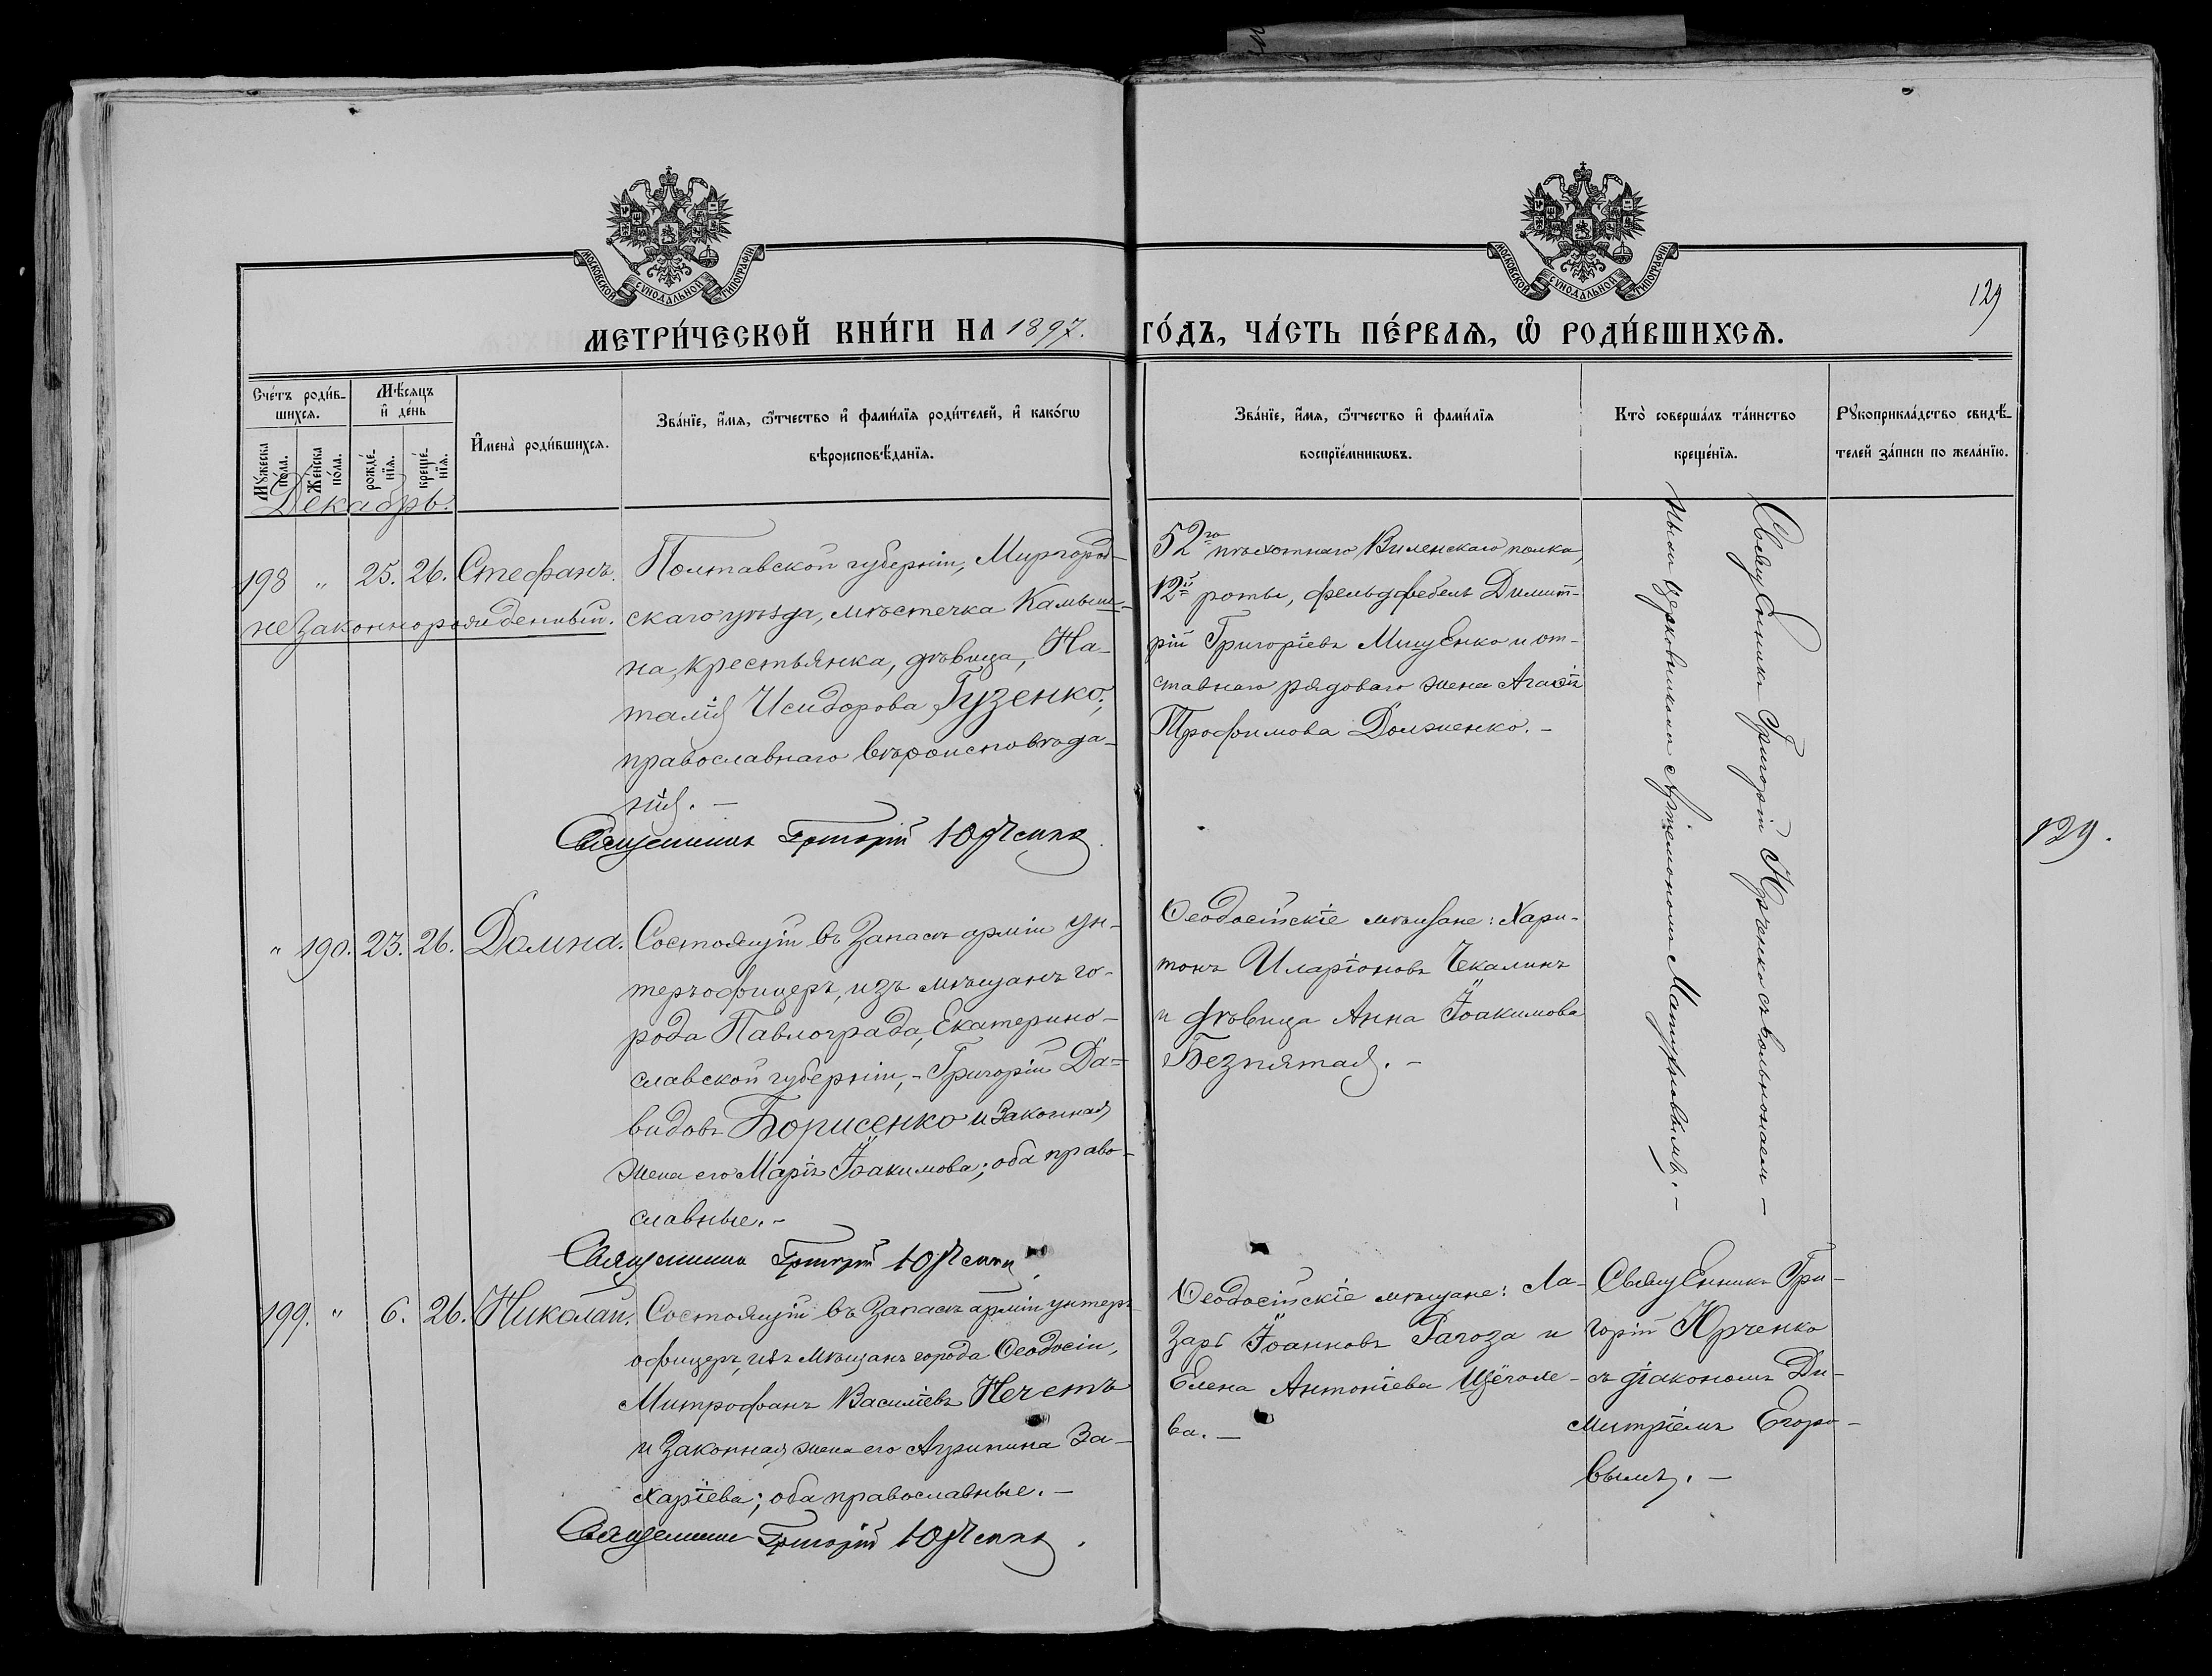 129
МОСКОВСКОЙ СѴНОДАЛЬНОЙ ТИПОГРАФІИ.
МОСКОВСКОЙ СѴНОДАЛЬНОЙ ТИПОГРАФІИ.
МЕТРИ́ЧЕСКОЙ КНИ́ГИ НА 1897. ГО́ДЪ, ЧА́СТЬ ПЕ́РВАѦ, Ѡ҆ РОДИ́ВШИХСѦ.
Сче́тъ роди́в-
шихсѧ.
Мꙋ́жеска по́ла.
Же́нска по́ла.
Мѣ́сѧцъ
и҆ де́нь
рожде́-
нїѧ.
креще́-
нїѧ.
И҆мена̀ роди́вшихсѧ.
Зва́нїе, и҆́мѧ, ѻ҆́тчество и҆ фами́лїѧ роди́телей, и҆ како́гѡ
вѣроисповѣ́данїѧ.
Зва́нїе, и҆́мѧ, ѻ҆́тчество и҆ фами́лїѧ
воспрїе́мникѡвъ.
Кто̀ соверша́лъ та́инство
креще́нїѧ.
Рꙋкоприкла́дство свидѣ́-
телей за́писи по жела́нїю.
Декабрь.
198 " 25. 26. Стефанъ.
незаконнорожденный.
Полтавской губерніи, Миргород-
скаго уѣзда, мѣстечка Камыш-
на, крестьянка, дѣвица, На-
талія Исидорова Гузенко;
православнаго вѣроисповѣда-
нія. –
Священникъ Григорій Юрченко
52го пѣхотнаго Виленскаго полка,
12й роты, фельдфебель Димит-
рій Григоріевъ Мищенко и от-
ставнаго рядоваго жена Агаѳія
Трофимова Долженко. –
Священникъ Григорій Юрченко съ вольнонаем-
нымъ церковникомъ Артемономъ Матушовымъ. –
129.
" 190. 23. 26. Домна.
Состоящій въ запасѣ арміи ун-
теръ-офицеръ, изъ мѣщанъ го-
рода Павлограда, Екатерино-
славской губерніи, – Григорій Да-
видовъ Борисенко и законная
жена его Марія Іоакимова; оба право-
славные. –
Священникъ Григорій Юрченко
Ѳеодосійскіе мѣщане: Хари-
тонъ Иларіоновъ Чекалинъ
и дѣвица Анна Іоакимова
Безпятая. –
199. " 6. 26. Николай.
Состоящій въ запасѣ арміи унтеръ-
офицеръ, изъ мѣщанъ города Ѳеодосіи,
Митрофанъ Василіевъ Нечетъ
и законная жена его Агрипина За-
харіева; оба православные. –
Священникъ Григорій Юрченко.
Ѳеодосійскіе мѣщане: Ла-
зарь Іоанновъ Рагоза и
Елена Антоніева Щёголе-
ва. –
Священникъ Гри-
горій Юрченко
съ діакономъ Ди-
митріемъ Егоро-
вымъ. –